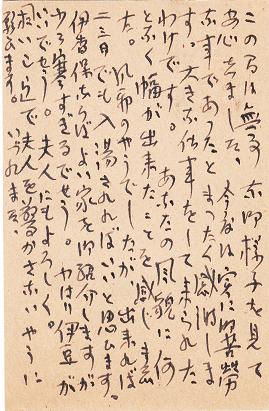 この間は無事な御様子を見て
安心しました、今度は実に御苦労
な事であったとまったく感謝しま
す。大きな仕事をして来られた
わけです。あなたの風貌に何
とかく幅が出来たことを感じまし
た。風邪のやうでしたが出来れば
二三日でも入湯されればいいと思ひます。
伊香保ならばよい家を御紹介しますが
少々寒すぎるでせう。やはり伊豆が
いいでせう。夫人にもよろしく。
で夫人を驚かさないやうに